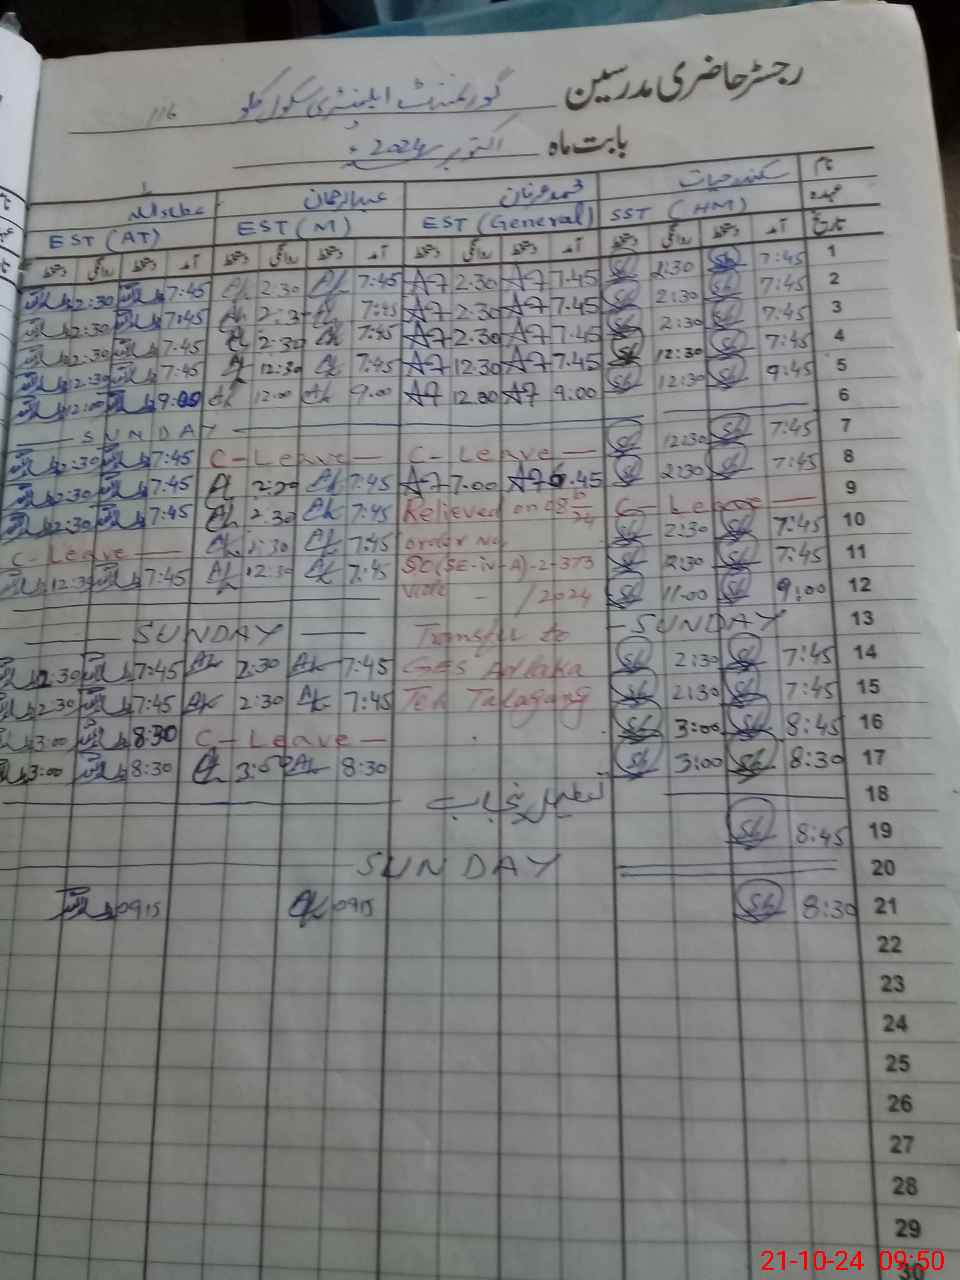 رجسٹر حاضری مدرسین گورنمنٹ ایلیمنٹری سکول 116
بابت ماہ اکتوبر 2024ء
نام سکندر حیات محمد عرفان عطاء اللہ
عہدہ SST (HM) EST (General) EST (M) EST (AT)
تاریخ آمد دستخط روانگی دستخط آمد دستخط روانگی دستخط آمد دستخط روانگی دستخط آمد دستخط روانگی دستخط
1 7:45 2:30 7.45 2.30 7:45 2:30 7:45 2:30
2 7:45 2:30 7.45 2.30 7:45 2:3 7:45 2:30
3 7:45 2:30 7.45 2.30 7:45 2:30 7:45 2:30
4 7:45 12:30 7.45 12.30 7:45 12:30 7:45 12:30
5 9:45 12:30 9:00 12.00 9.00 12.00 9:00 12:00
6 SUNDAY
7 7:45 12:30 C-Leave C-Leave 7:45 2:30
8 7:45 2:30 6.45 7.00 7:45 7:45 2:30
9 C-Leave Relieved on 08 7:45 2:30 7:45 2:30
10 7:45 2:30 order No. 7:45 2:30 C-Leave
11 7:45 2:30 SO(SE-iv-A)-2-373 7:45 12:30 7:45 12:30
12 9:00 11:00 /2024
13 SUNDAY Transfer to SUNDAY
14 7:45 2:30 GES 7:45 2:30 7:45 2:30
15 7:45 2:30 Teh Talagang 7:45 2:30 7:45 2:30
16 8:45 3:00 C-Leave 8:30 3:00
17 8:30 3:00 8:30 3:00 8:30 3:00
18 تعطیل
19 8:45
20 SUNDAY
21 8:30 0915 0915
22
23
24
25
26
27
28
29
30
21-10-24 09:50